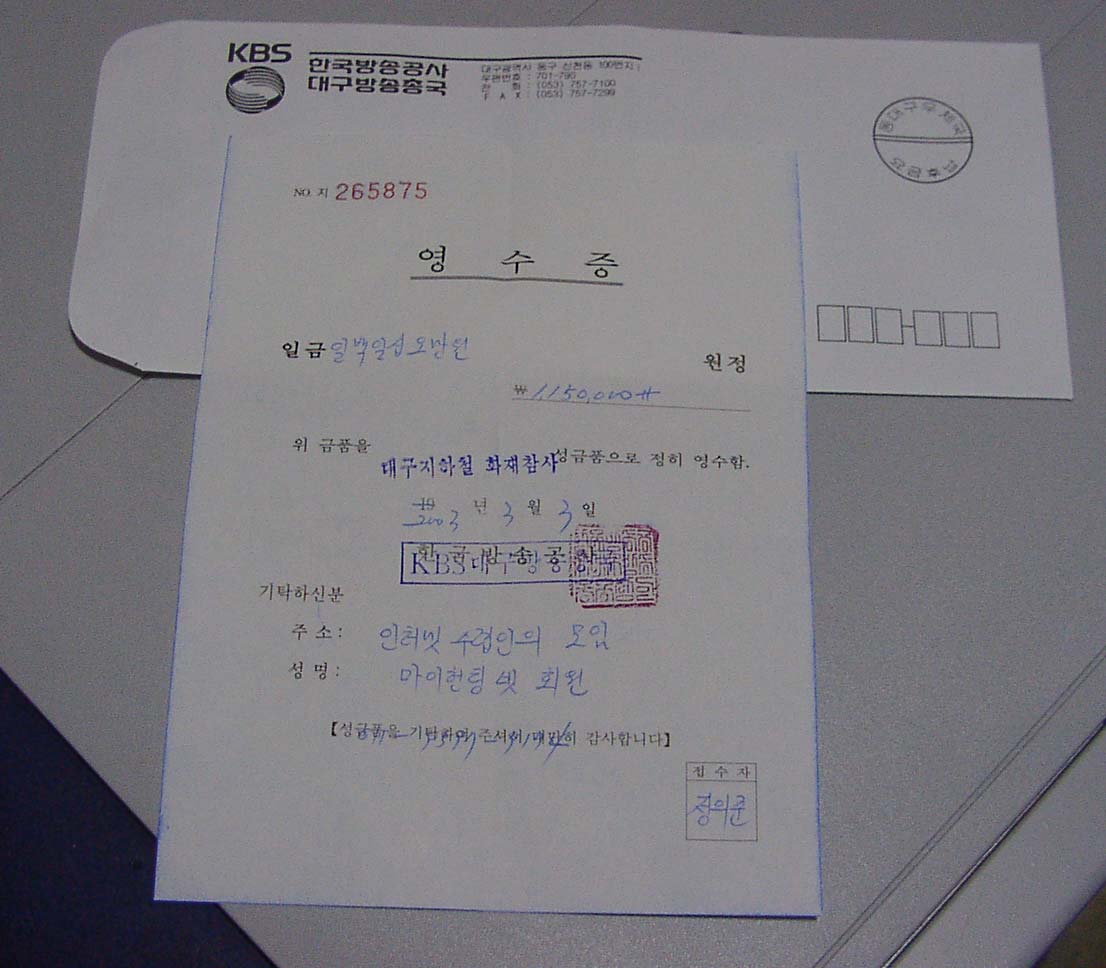 KBS
한국방송공사
대구방송총국
대구광역시 동구 신천동 100번지
우편번호 : 701-790
전 화 : (053) 757-7100
F A X : (053) 757-7299
동대구우체국
요금후납
NO. 지 265875
영 수 증
일금 일백일십오만원 원정
₩ 1,150,000#
위 금품을 대구지하철 화재참사 성금품으로 정히 영수함.
19
2003 년 3 월 3 일
한국방송공사
KBS대구방송
기탁하신분
주 소 : 인터넷 수렵인의 모임
성 명 : 마이헌팅넷 회원
【성금품을 기탁하여 주셔서 대단히 감사합니다】
접 수 자